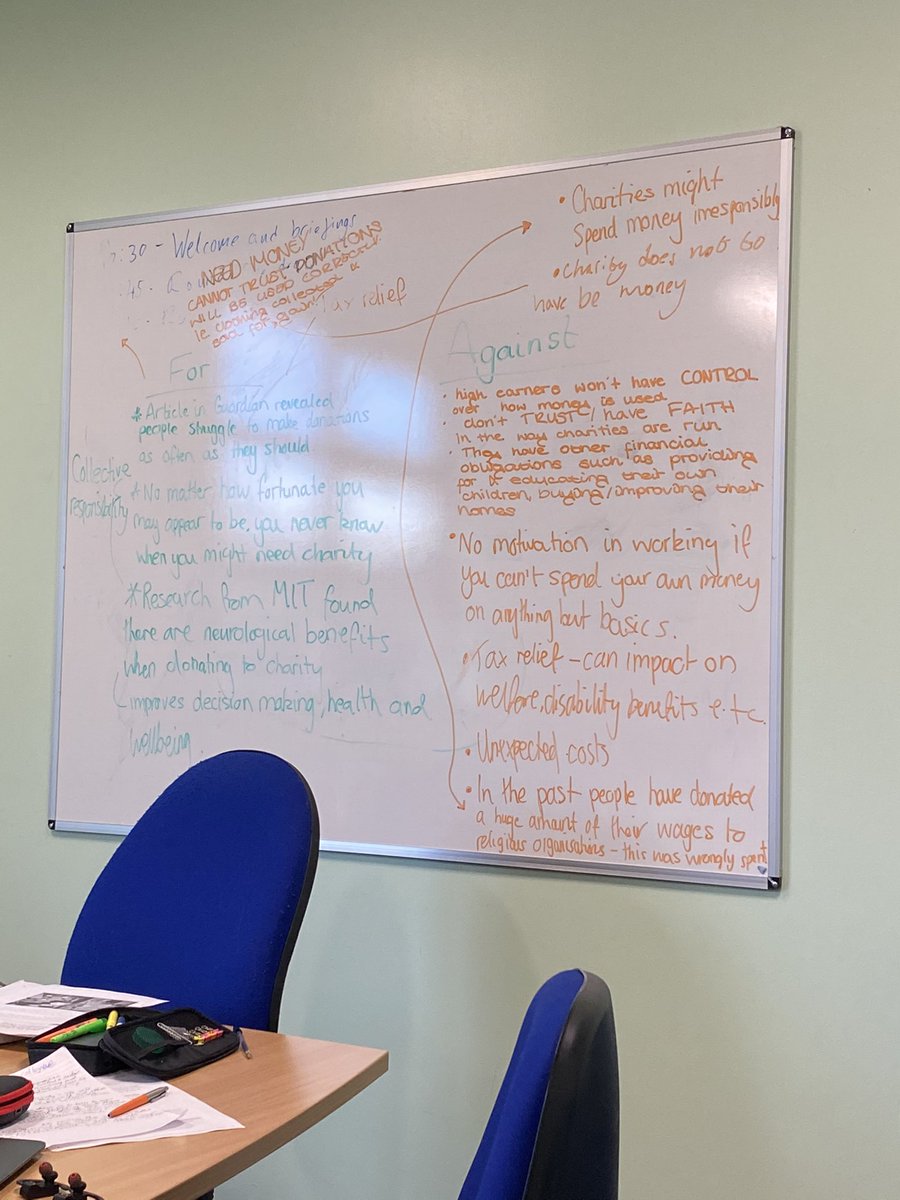 :30 - Welcome and briefings
:45 -
NEED MONEY
CANNOT TRUST DONATIONS
WILL BE USED CORRECTLY
ie clothing collected &
sold for gain!
Tax relief
For
* Article in Guardian revealed
people struggle to make donations
as often as they should
Collective
responsibility
* No matter how fortunate you
may appear to be, you never know
when you might need charity
* Research from MIT found
there are neurological benefits
when donating to charity
improves decision making, health and
wellbeing.
• Charities might
spend money irresponsibly
• Charity does not to
have be money
Against
• high earners won't have CONTROL
over how money is used
• don't TRUST / have FAITH
in the way charities are run
• They have other financial
obligations such as providing
for & educating their own
children, buying/improving their
homes
• No motivation in working if
you can't spend your own money
on anything but basics.
• Tax relief - can impact on
welfare, disability benefits e.t.c.
• Unexpected costs
• In the past people have donated
a huge amount of their wages to
religious organisations - this was wrongly spent